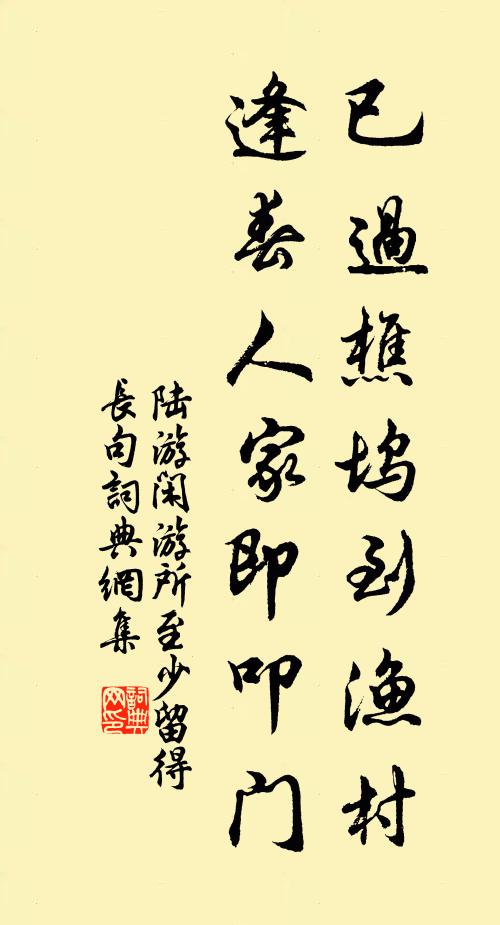 已過樵塢到漁村
逢春人家即叩门
陆游閑游所至少留得
長句詞典網集
詞典
网印